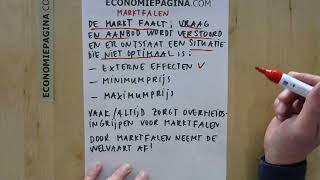 ECONOMIEPAGINA.COM
ECONOMIEPAGINA.COM
MARKTFALEN
DE MARKT FAALT, VRAAG
EN AANBOD WORDT VERSTOORD
EN ER ONTSTAAT EEN SITUATIE
DIE NIET OPTIMAAL IS:
- EXTERNE EFFECTEN ✓
- MINIMUMPRIJS
- MAXIMUMPRIJS
VAAK/ALTIJD ZORGT OVERHEIDS-
INGRIJPEN VOOR MARKTFALEN
DOOR MARKTFALEN NEEMT DE
WELVAART AF!